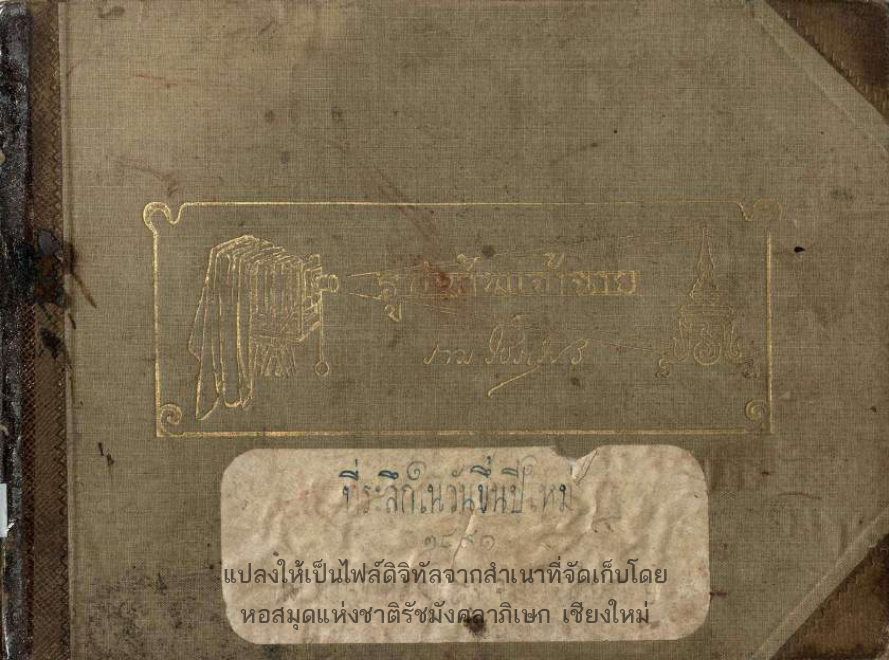 รูปเจ้านาย
ที่ระลึกในวันขึ้นปีใหม่
๒๔๘๑
แปลงให้เป็นไฟล์ดิจิทัลจากสำเนาที่จัดเก็บโดย
หอสมุดแห่งชาติรัชมังคลาภิเษก เชียงใหม่